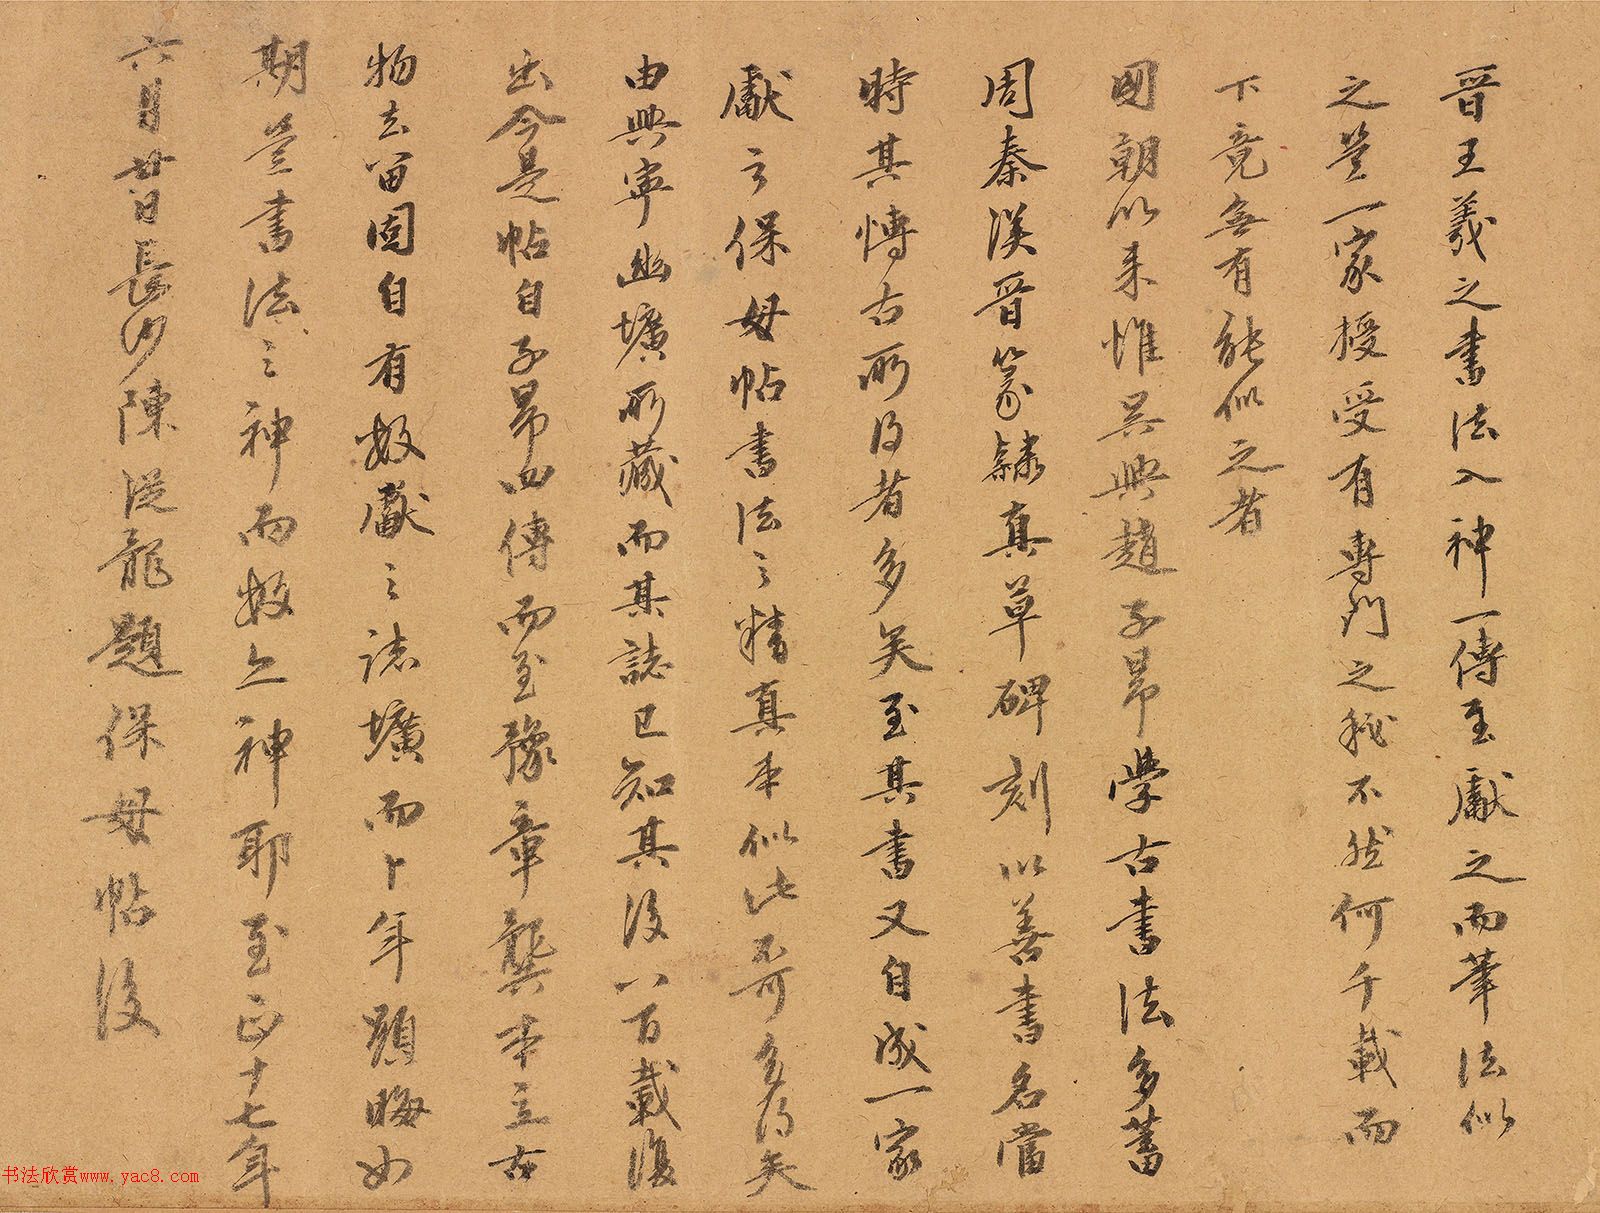 晉王羲之書法入神一傳至獻之而筆法似
之豈一家授受有專門之秘不然何千載而
下竟無有能似之者
國朝以来惟吴興趙子昂學古書法多蓄
周秦漢晉篆隸真草碑刻以善書名當
時其博古所得者多矣至其書又自成一家
獻之保母帖書法之精真本似此奇多得矣
由興寧幽壙所藏而其誌已知其後八百載復
出今是帖自子昂四傳而至豫章龔本立古
物去留固自有數獻之誌壙而卜年顯晦如
期豈書法之神而數亦神耶至正十七年
六月廿日長沙陳從龍題保母帖後
书法欣赏www.yac8.com